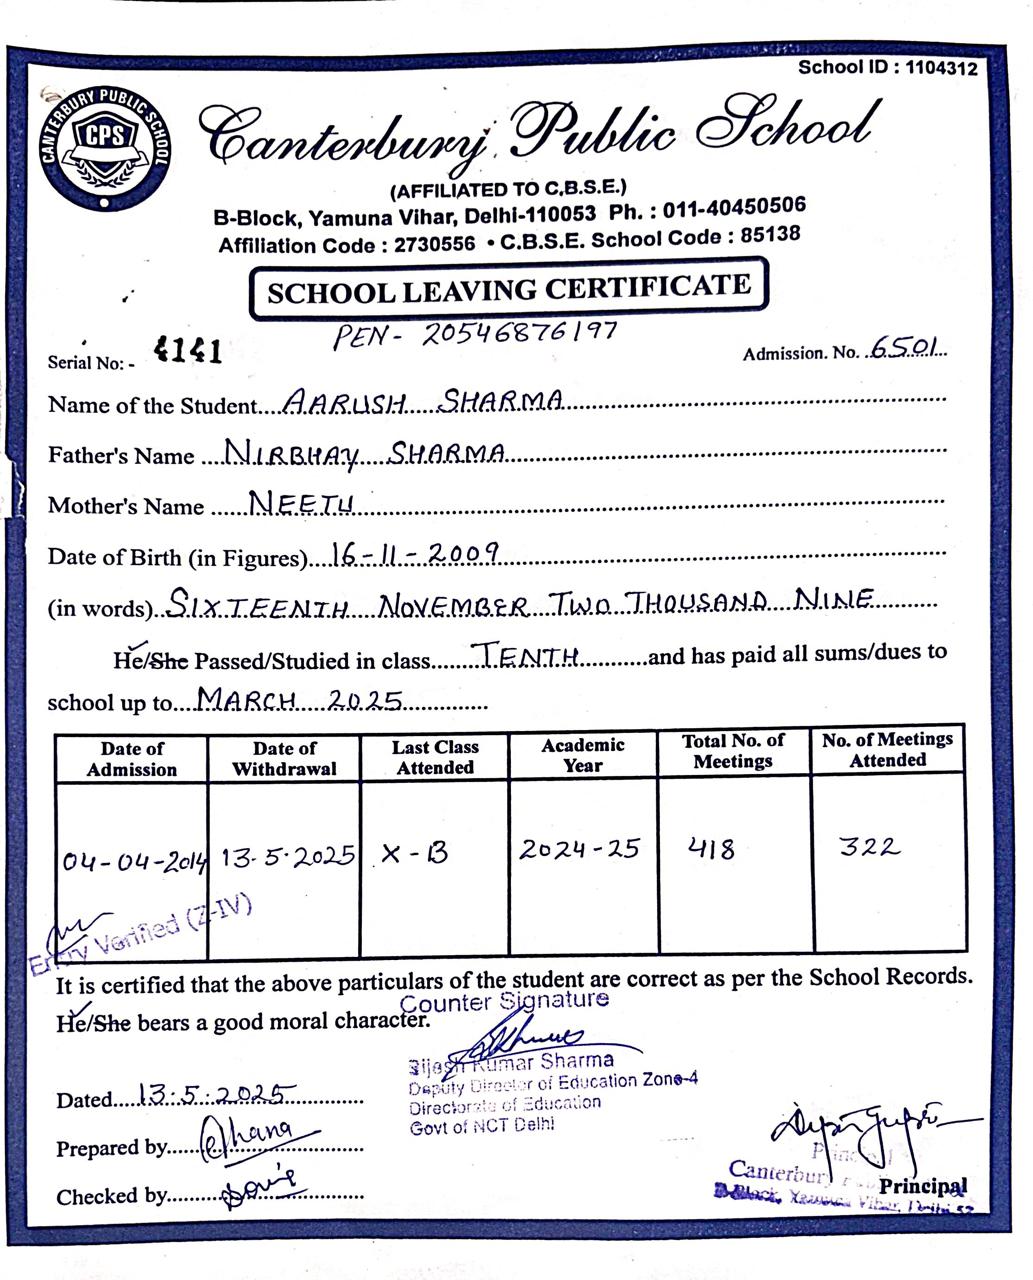 School ID : 1104312
CANTERBURY PUBLIC SCHOOL
CPS
Canterbury Public School
(AFFILIATED TO C.B.S.E.)
B-Block, Yamuna Vihar, Delhi-110053 Ph. : 011-40450506
Affiliation Code : 2730556 • C.B.S.E. School Code : 85138
SCHOOL LEAVING CERTIFICATE
PEN- 20546876197
Serial No:- 4141 Admission. No. 6501
Name of the Student....AARUSH SHARMA
Father's Name ...NIRBHAY SHARMA
Mother's Name ......NEETU
Date of Birth (in Figures)....16-11-2009
(in words)..SIXTEENTH NOVEMBER TWO THOUSAND NINE
He/She Passed/Studied in class......TENTH..........and has paid all sums/dues to
school up to....MARCH 2025
Date of Admission Date of Withdrawal Last Class Attended Academic Year Total No. of Meetings No. of Meetings Attended
04-04-2014 13-5-2025 X-B 2024-25 418 322
Entry Verified (Z-IV)
It is certified that the above particulars of the student are correct as per the School Records.
Counter Signature
He/She bears a good moral character.
Kumar Sharma
Deputy Director of Education Zone-4
Directorate of Education
Govt of NCT Delhi
Dated.....13.5.2025
Prepared by
Checked by
Principal
Canterbury
Principal
B-Block, Yamuna Vihar, Delhi-53